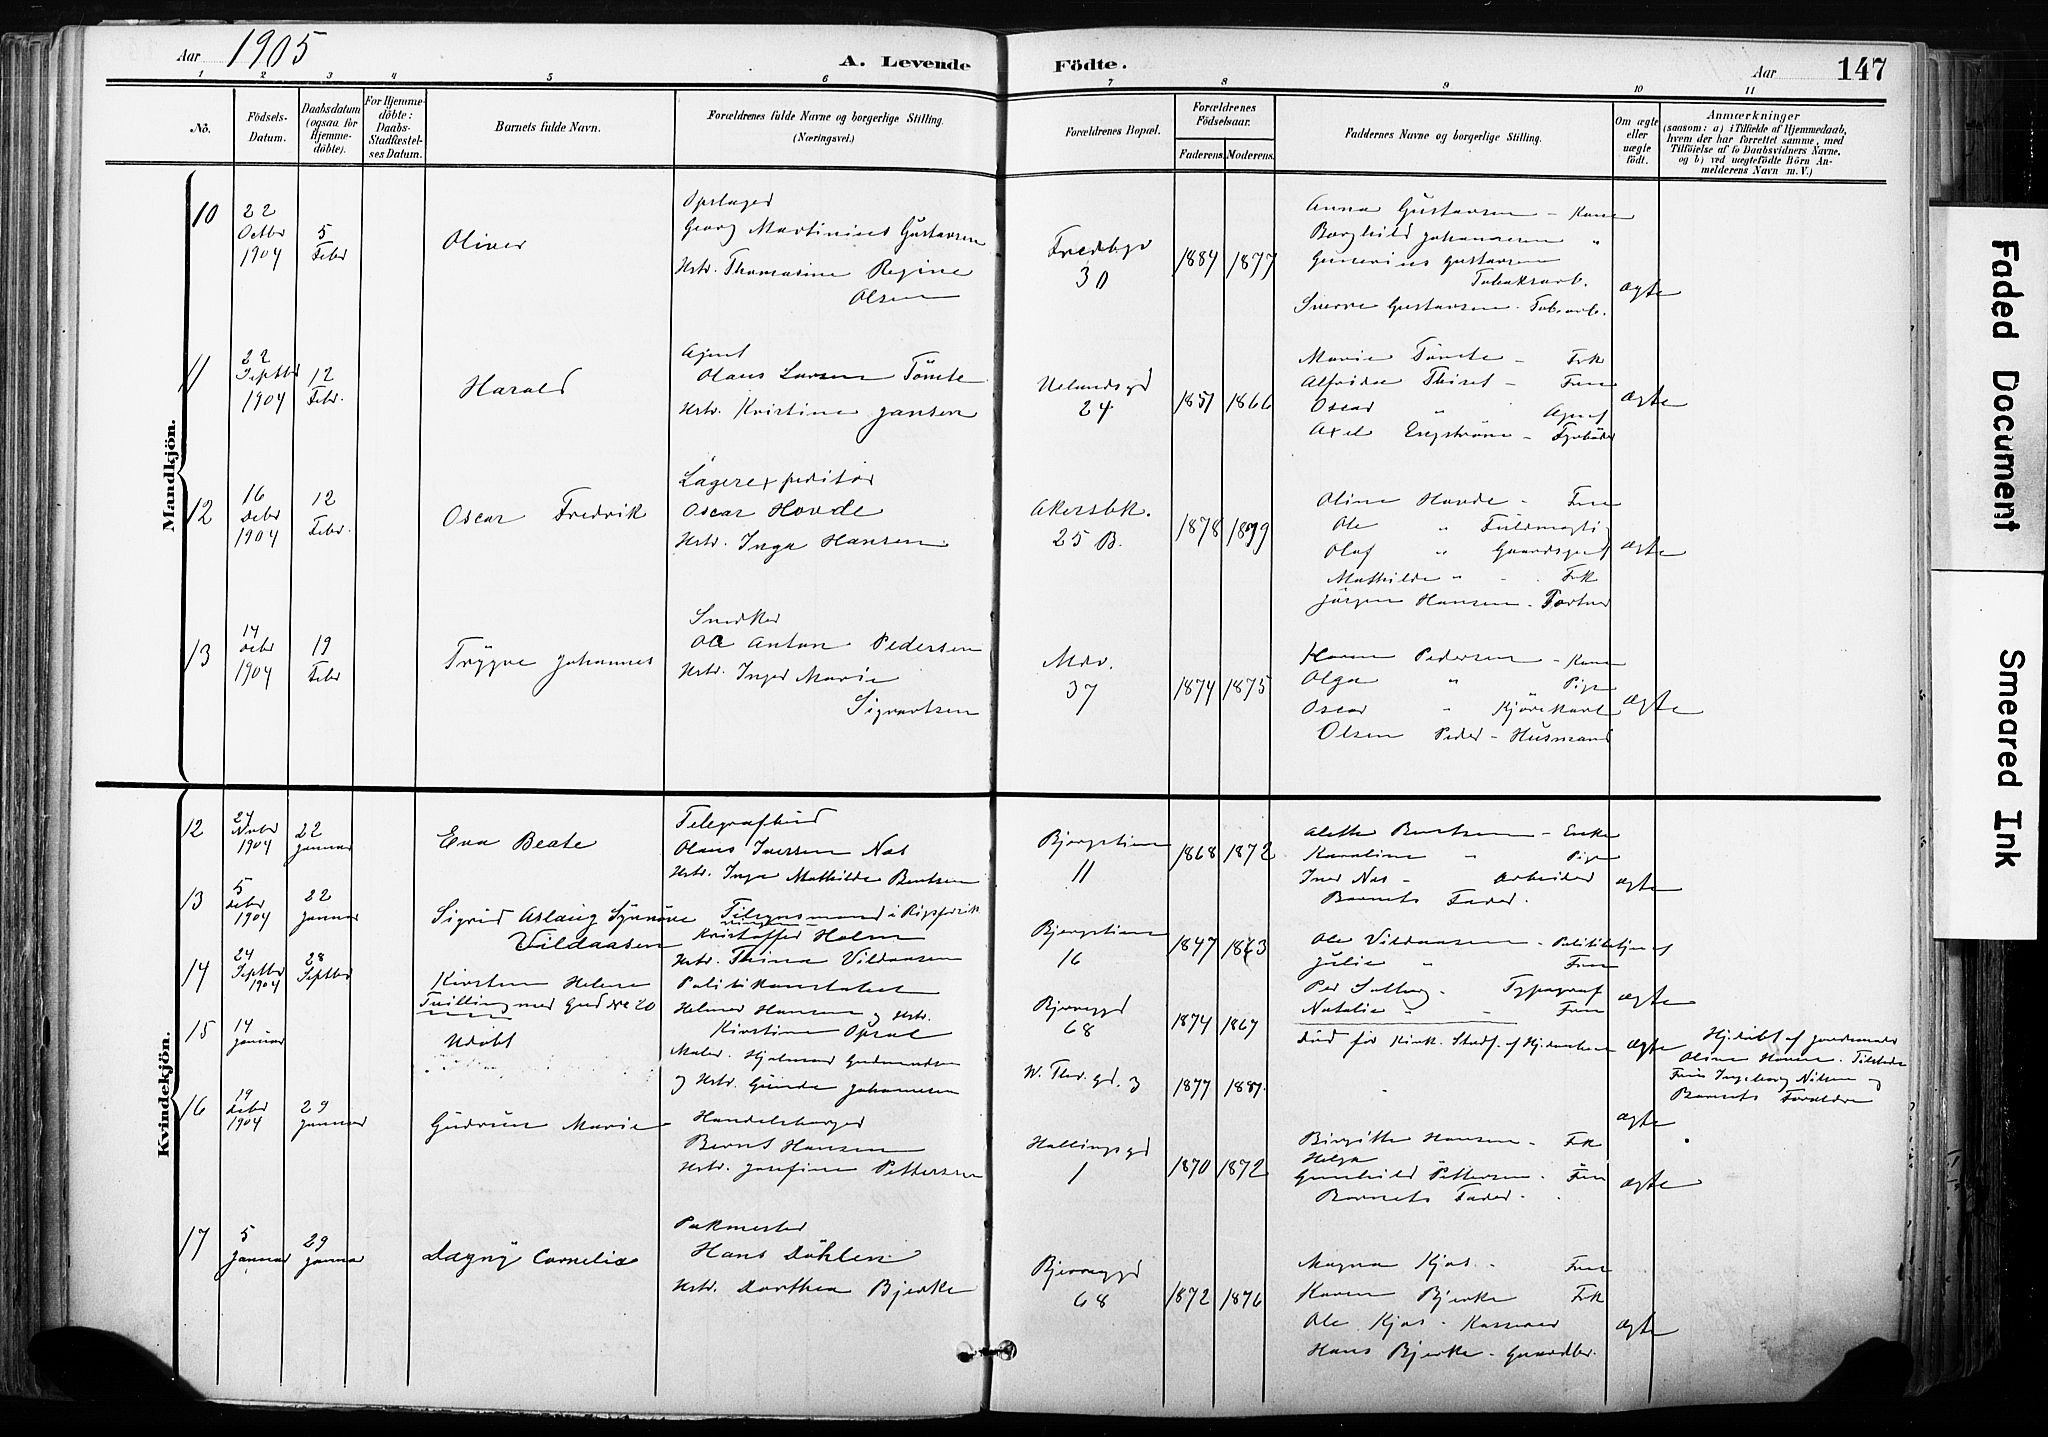 Aar 1905
A. Levende Födte.
Aar
147
1 2 3 4 5 6 7 8 9 10 11
No.
Födsels-
Datum.
Daabsdatum
(ogsaa for
Hjemme-
döbte).
For Hjemme-
döbte:
Daabs-
Stadfæstel-
ses Datum.
Barnets fulde Navn.
Forældrenes fulde Navne og borgerlige Stilling.
(Næringsvei.)
Forældrenes Bopæl.
Forældrenes
Födselsaar.
Faderens.
Moderens.
Faddernes Navne og borgerlige Stilling.
Om ægte
eller
uægte
födt.
Anmærkninger
(saasom: a) i Tilfælde af Hjemmedaab,
hvem der har forrettet samme, med
Tilföielse af to Daabsvidners Navne,
og b) ved uægtefödte Börn An-
melderens Navn m. V.)
Mandkjön.
10
22
Octbr
1904
5
Febr
Oliver
Opslager
Georg Martinius Gustavsen
Hstr. Thomasine Regine
Olsen
Fredbgv
30
1884 1877
Anna Gustavsen - Kone
Borghild Johannesen "
Gunerius Gustavsen
Tobaksarb.
Sverre Gustavsen - Tobarb.
Ægte
11
22
Septbr
1904
12
Febr.
Harald
Agent
Olaus Larsen Tömte
Hstr. Kristine Jansen
Uelandsgd
24
1851 1866
Marie Tömte - Frk
Alfrida Thiset - Frue
Oscar " Agent
Axel Engström - Fyrböder
Ægte
12
16
Debr
1904
12
Febr.
Oscar Fredrik
Lagerexpeditör
Oscar Hovde
Hstr. Inga Hansen
Akersbk.
25 B.
1878 1879
Oline Hovde - Frue
Ole " Fuldmægtig
Olaf " Gaardsgut
Mathilde " - Frk
Jörgen Hansen - Portner
Ægte
13
14
Debr
1904
19
Febr
Trygve Johannes
Snedker
Ole Anton Pedersen
Hstr. Inger Marie
Sigvartsen
Mdv.
37
1874 1875
Karen Pedersen - Kone
Olga " Pige
Oscar " Kjörekarl
Olsen Peder - Husmand
Ægte
Kvindekjön.
12
24
Nvbr
1904
22
Januar
Eva Beate
Telegrafbud
Olaus Iversen Næs
Hstr. Inga Mathilde Berntsen
Bjergstien
11
1868 1872
Alette Berntsen - Enke
Karoline " Pige
Iver Næs - Arbeider
Barnets Fader.
Ægte
13
5
Debr
1904
22
Januar
Sigrid Aslaug Synnöve
Vildaasen
Tilsynsmand i
Kristoffer Holm
Hstr. Trina Vildaasen
Bjergstien
16
1847 1863
Ole Vildaasen - Politibetjent
Julie " Frue
Per Solberg - Typograf
Natalie " - Frue
Ægte
14
24
Septbr
1904
28
Septbr
Kirsten Helene
Tvilling med Gud No 20
Politikonstabel
Helmer Hansen og Hstr.
Kirstine Opsal
Bjerregd
68
1874 1867
död för Kirk. Stadf. af Hjdaaben
Ægte
Hjdöbt af Jordemoder
Oline Hansen. Tilstede
Frue Ingeborg Nilsen og
Barnets Forældre
15
14
Januar
Udöbt
Maler. Hjalmar Gudmundsen
og Hstr. Gunda Johannesen
W. Thr. gd. 3
1877 1881.
Ægte
16
19
Debr
1904
29
Januar
Gudrun Marie
Handelsborger
Bernt Hansen
Hstr. Josefine Pettersen
Hallingsgd
1
1870 1872
Birgitte Hansen - Frk
Helga
Gunhild Pettersen - Frue
Barnets Fader.
Ægte
17
5
Januar
29
Januar
Dagny Cornelia
Pakmester
Hans Döhlen
Hstr. Dorthea Bjerke
Bjerregd
68
1872 1876
Magna Kjos - Frue
Karen Bjerke Frk
Ole Kjos - Kasserer
Hans Bjerke - Gaardbr.
Ægte
Faded Document
Smeared Ink